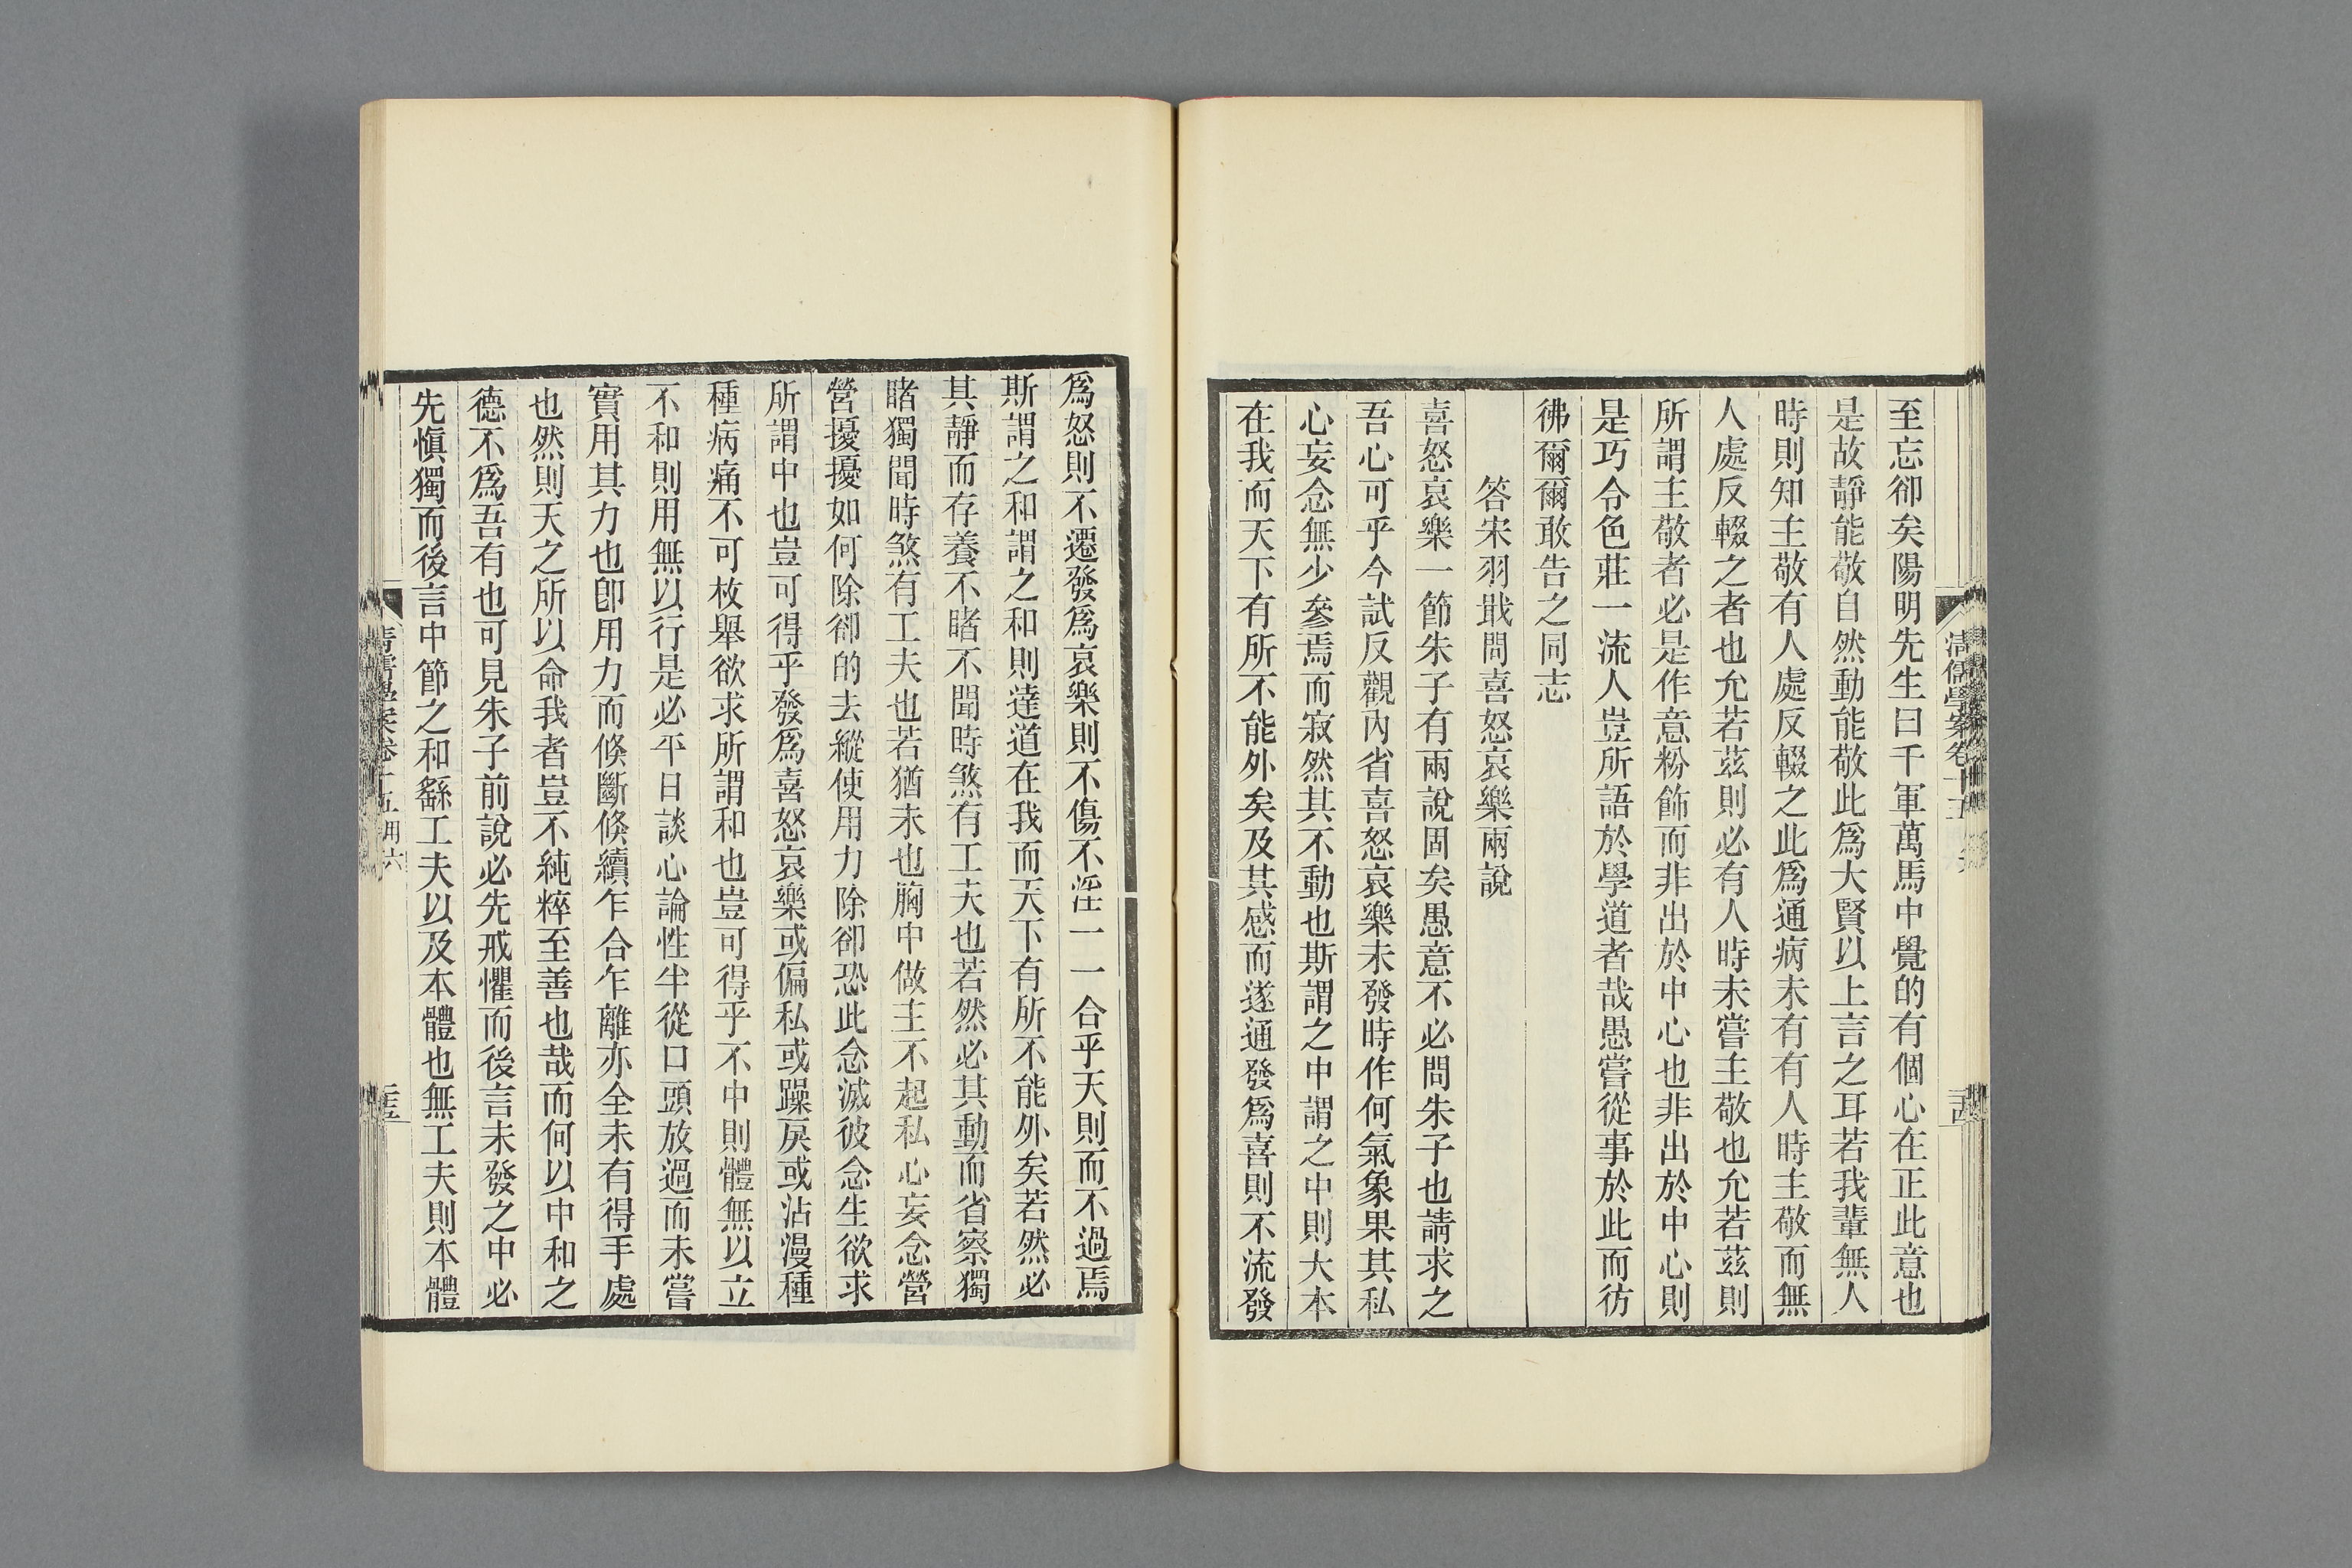 至忘卻矣陽明先生曰千軍萬馬中覺的有個心在正此意也
是故靜能敬自然動能敬此爲大賢以上言之耳若我輩無人
時則知主敬有人處反輟之此爲通病未有有人時主敬而無
人處反輟之者也允若茲則必有人時未嘗主敬也允若茲則
所謂主敬者必是作意粉飾而非出於中心也非出於中心則
是巧令色莊一流人豈所語於學道者哉愚嘗從事於此而彷
彿爾爾敢告之同志
答宋羽戢問喜怒哀樂兩說
喜怒哀樂一節朱子有兩說固矣愚意不必問朱子也請求之
吾心可乎今試反觀內省喜怒哀樂未發時作何氣象果其私
心妄念無少參焉而寂然其不動也斯謂之中謂之中則大本
在我而天下有所不能外矣及其感而遂通發爲喜則不流發
爲怒則不遷發爲哀樂則不傷不淫一一合乎天則而不過焉
斯謂之和謂之和則達道在我而天下有所不能外矣若然必
其靜而存養不睹不聞時煞有工夫也若然必其動而省察獨
睹獨聞時煞有工夫也若猶未也胸中做主不起私心妄念營
營擾擾如何除卻的去縱使用力除卻恐此念滅彼念生欲求
所謂中也豈可得乎發爲喜怒哀樂或偏私或躁戾或沾漫種
種病痛不可枚舉欲求所謂和也豈可得乎不中則體無以立
不和則用無以行是必平日談心論性半從口頭放過而未嘗
實用其力也卽用力而倏斷倏續乍合乍離亦全未有得手處
也然則天之所以命我者豈不純粹至善也哉而何以中和之
德不爲吾有也可見朱子前說必先戒懼而後言未發之中必
先愼獨而後言中節之和繇工夫以及本體也無工夫則本體
清儒學案卷十五
清儒學案卷十五 用六